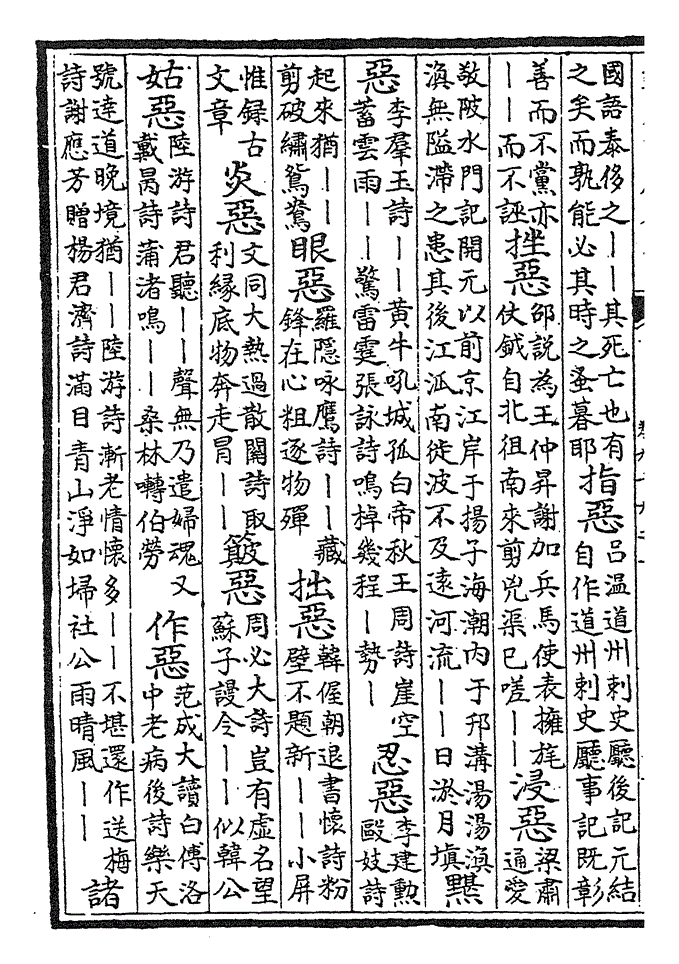 國語泰侈之——其死亡也有
之矣而孰能必其時之蚤暮耶
指惡
呂溫道州刺史廳後記元結
自作道州刺史廳事記既彰
善而不黨亦
——而不誣
挫惡
邵說為王仲昇謝加兵馬使表擁旄
仗鉞自北徂南來剪兇渠已嗟——
浸惡
梁肅
通愛
敬陂水門記開元以前京江岸于揚子海潮內于邗溝湯湯滇
滇無隘滯之患其後江派南徙波不及遠河流——日淤月填
黮
惡
李羣玉詩——黃牛吼城孤白帝秋王周詩崖空
蓄雲雨——驚雷霆張詠詩鳴棹幾程—勢—
忍惡
李建勳
毆妓詩
起來猶———
剪破繡鴛鴦
眼惡
羅隱咏鷹詩——藏
鋒在心粗逐物殫
拙惡
韓偓朝退書懷詩粉
壁不題新——小屏
惟錄古
文章
炎惡
文同大熱過散關詩取
利緣底物奔走冒——
簸惡
周必大詩豈有虛名望
蘇子謾令——似韓公
姑惡
陸游詩君聽——聲無乃遣婦魂又
戴昺詩蒲渚鳴——桑林囀伯勞
作惡
范成大讀白傅洛
中老病後詩樂天
號達道晚境猶——陸游詩漸老情懷多——不堪還作送梅
詩謝應芳贈楊君濟詩滿目青山淨如埽社公雨晴風——
諸